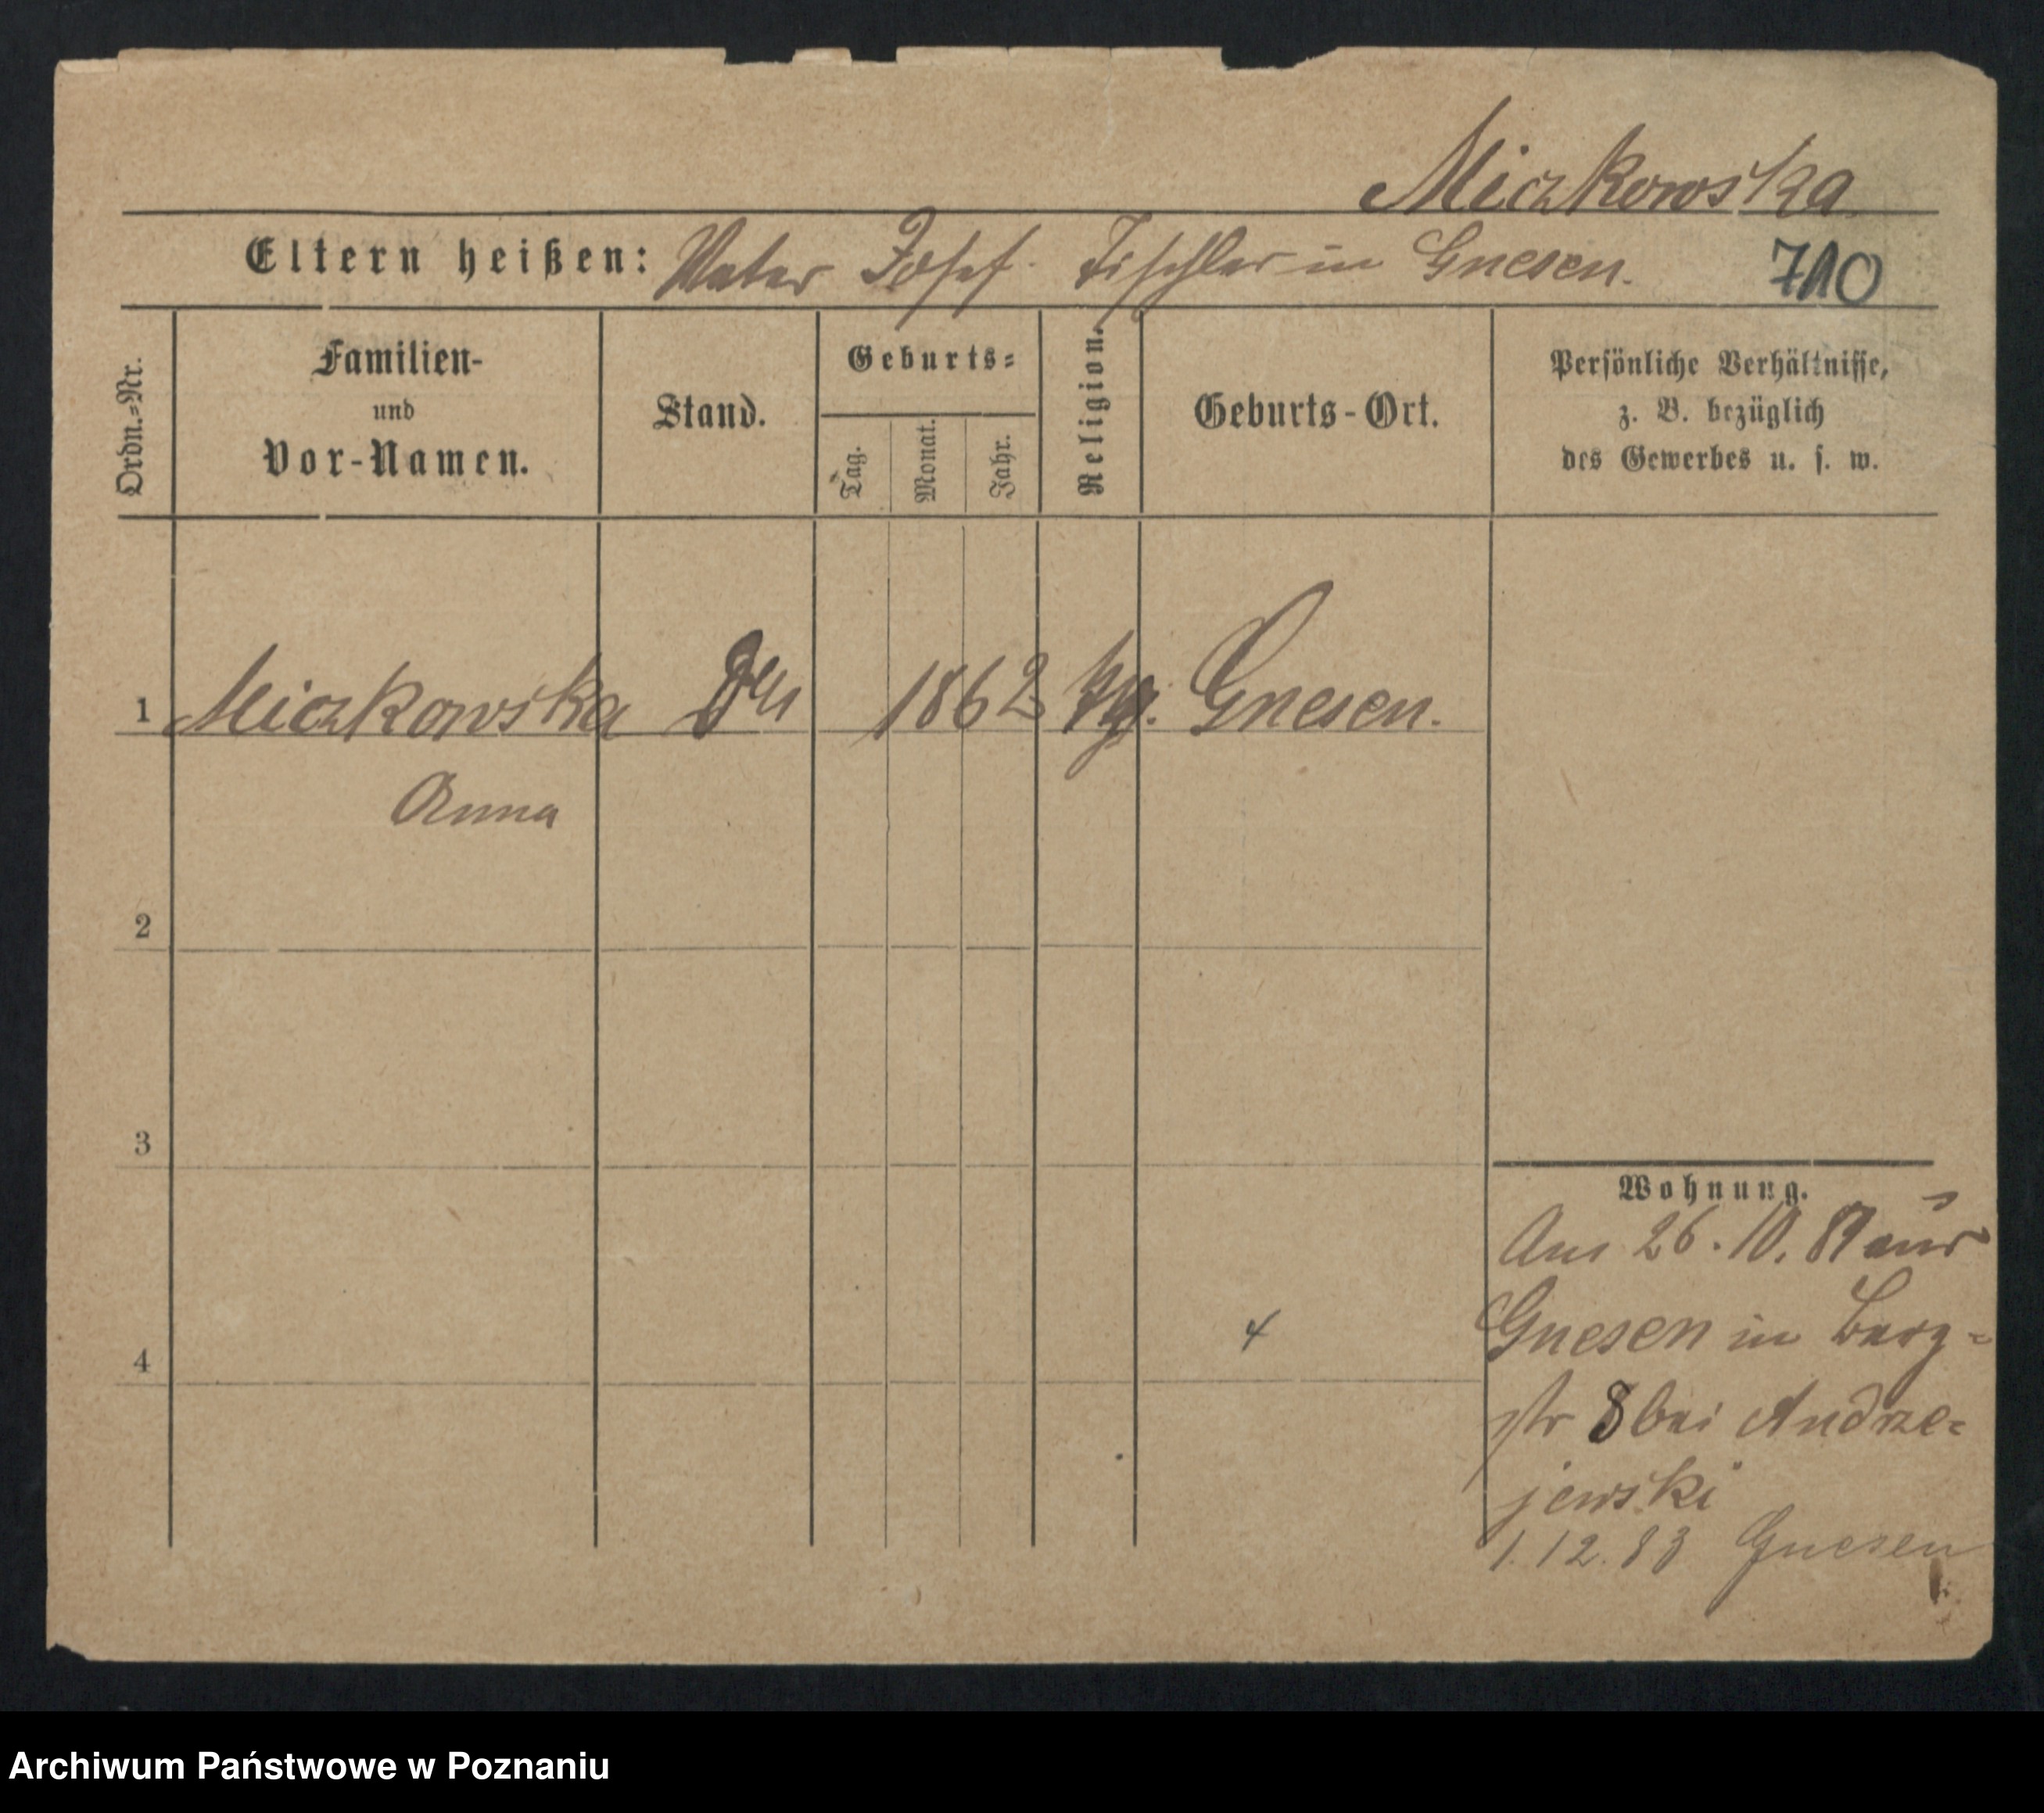 Miczkowska
Eltern heißen: Vater Josef Tischler in Gnesen. 710
Ordn.=Nr.
Familien-
und
Vor-Namen.
Stand.
Geburts=
Tag.
Monat.
Jahr.
Religion.
Geburts-Ort.
Persönliche Verhältnisse,
z. B. bezüglich
des Gewerbes u. s. w.
1 Miczkowska 1862 Gnesen.
Anna
2
3
4
Wohnung.
Am 26. 10. aus
Gnesen in Berg=
str 8 bei Andrze=
jewski
1. 12. 83 Gnesen
Archiwum Państwowe w Poznaniu